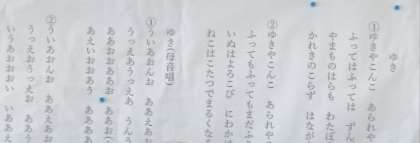 ゆき
①ゆきやこんこ　あられや
ふってはふっては　ずん
やまものはらも　わたぼ
かれきのこらず　はなが
②ゆきやこんこ　あられや
ふってもふってもまだふ
いぬはよろこび　にわか
ねこはこたつでまるくな
ゆき(母音唱)
①ういあおんお　ああえあ
うっえあうっえあ　うんう
ああおおあおお　あああ
あえいおおあう　あああ
②ういあおんお　ああえあ
うっえおうっえお　ああ
いうあおおおい　いああえ